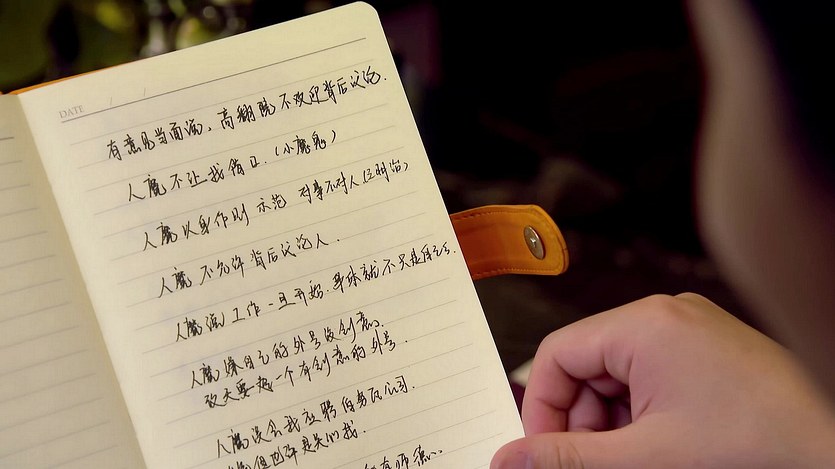 DATE / /
有意见当面说,高翻院不欢迎背后议论.
人魔不让我借口.(小魔鬼)
人魔以身作则 示范 对事不对人
人魔不允许背后议论人.
人魔说工作一旦开始.身体就不只是自己的.
人魔嫌自己的外号没创意.
改天要想一个有创意的外号.
人魔没会我应聘 公司.
但也许是关心我.
有师德.